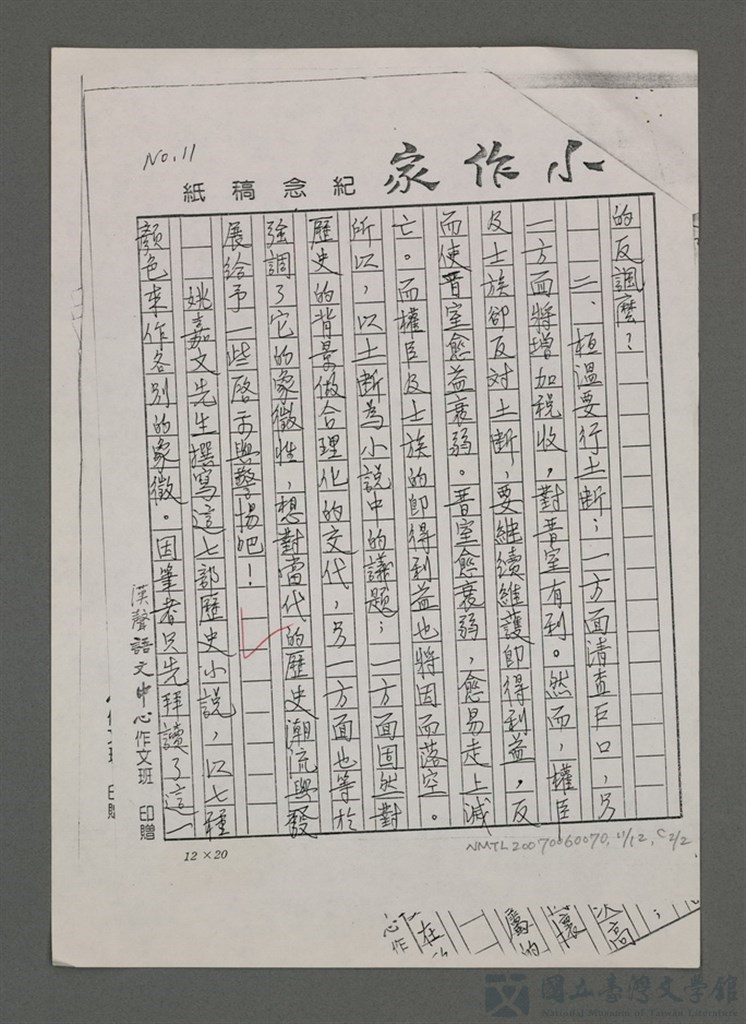 No.11
小作家 紀念稿紙
的反調麼？
二、桓溫要行土断；一方面清查戶口，另
一方面將增加稅收，對晋室有利。然而，權臣
及士族卻反对土断，要継续維護即得利益，反
而使晋室愈益衰弱。晋室愈衰弱，愈易走上滅
亡。而權臣及士族的即得利益也將因而落空。
所以，以土断為小說中的議題；一方面固然對
歷史的背景做合理化的交代，另一方面也等於
強調了它的象徵性，想對當代的歷史潮流與發
展給予一些啓示與警惕吧！
姚嘉文先生撰寫這七部歷史小說，以七種
顏色來作各別的象徵。因筆者只先拜讀了這一
漢聲語文中心作文班 印贈
12×20
NMTL20070060070, 11/12, C2/2
國立臺灣文學館
National Museum of Taiwan Literature